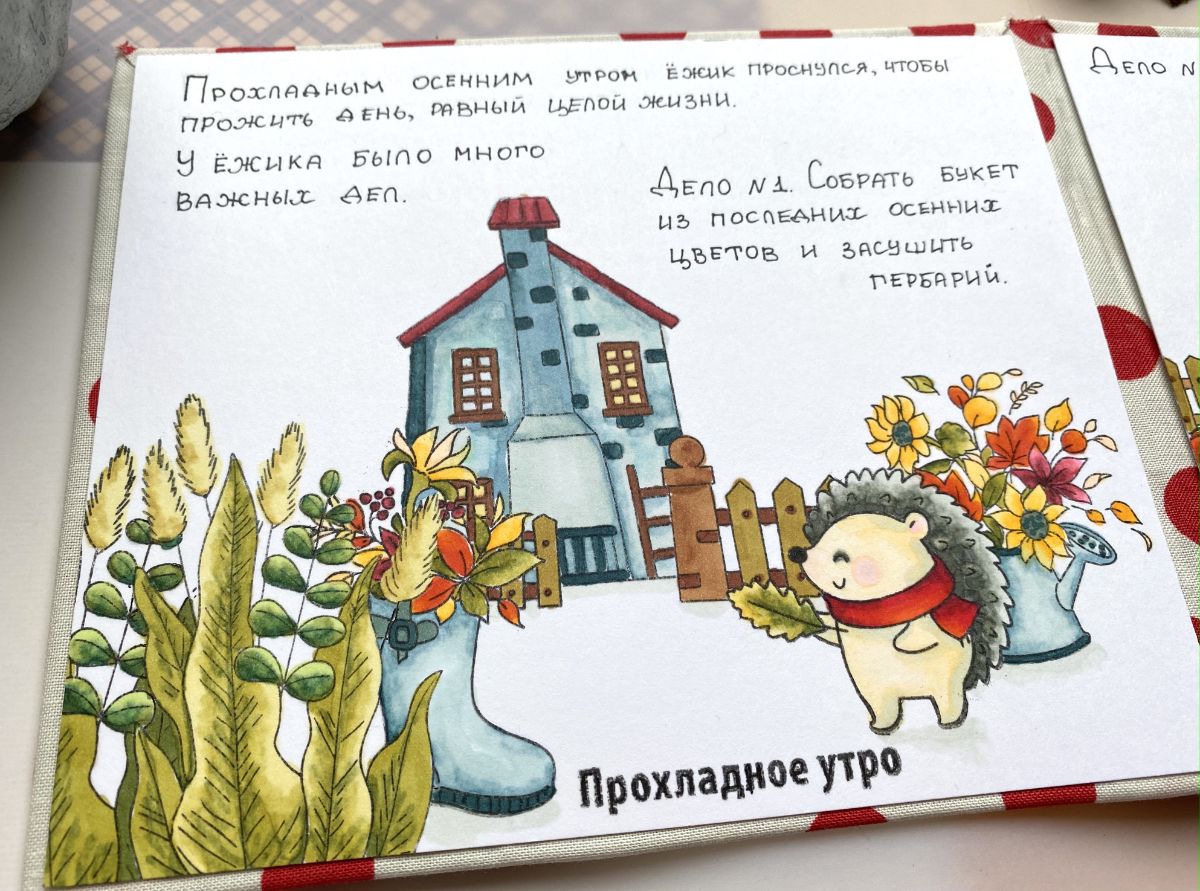 Прохладным осенним утром ёжик проснулся, чтобы
прожить день, равный целой жизни.
У ёжика было много
важных дел.
Дело №1. Собрать букет
из последних осенних
цветов и засушить
гербарий.
Прохладное утро
Дело №